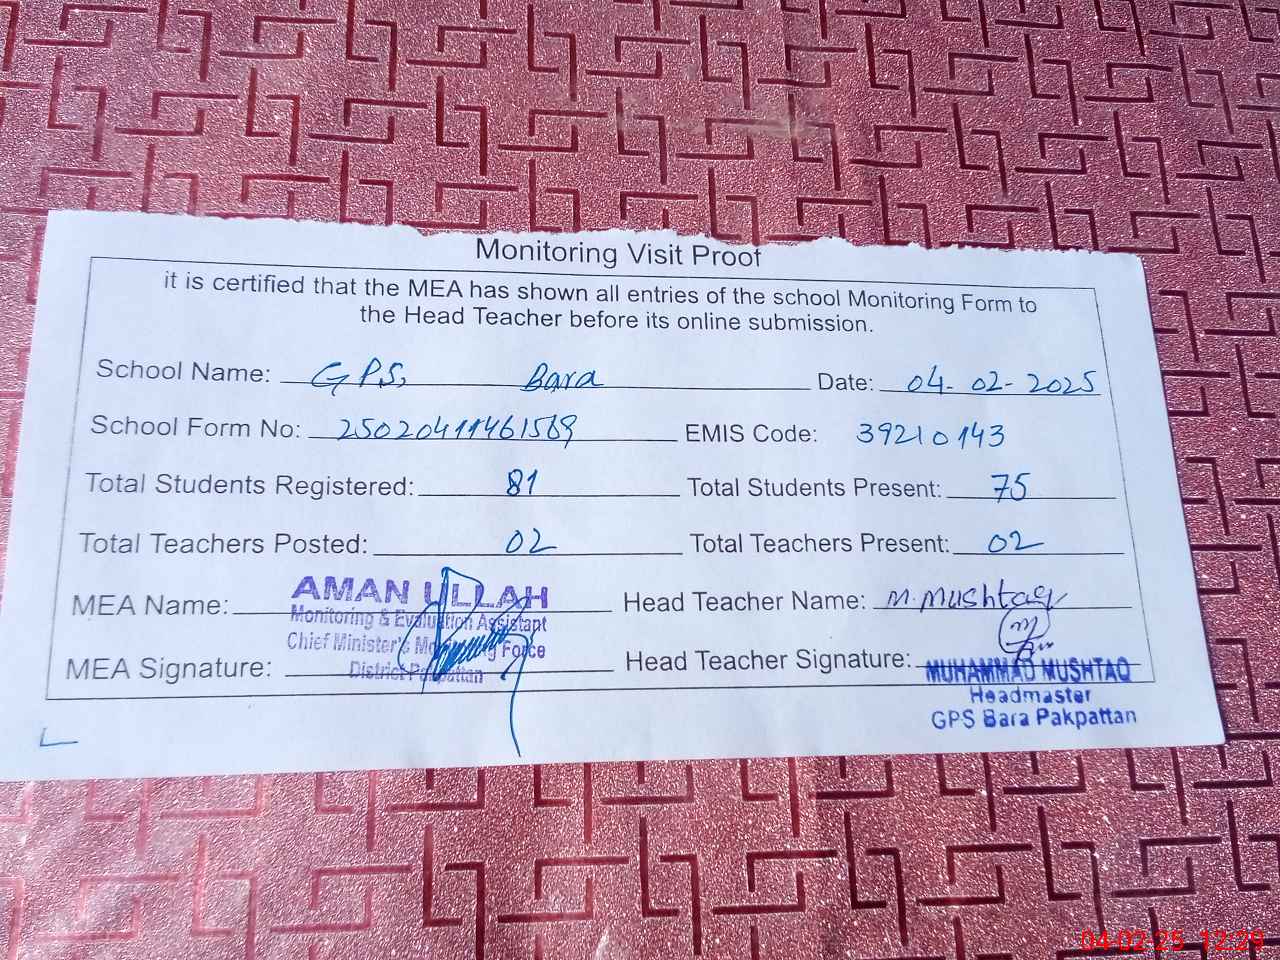 Monitoring Visit Proof
it is certified that the MEA has shown all entries of the school Monitoring Form to
the Head Teacher before its online submission.
School Name: GPS, Bara Date: 04-02-2025
School Form No: 25020411461569 EMIS Code: 39210143
Total Students Registered: 81 Total Students Present: 75
Total Teachers Posted: 02 Total Teachers Present: 02
MEA Name: AMAN ULLAH Head Teacher Name: M. Mushtaq
Monitoring & Evaluation Assistant
Chief Minister's Monitoring Force
MEA Signature: District Pakpattan Head Teacher Signature:
MUHAMMAD MUSHTAQ
Headmaster
GPS Bara Pakpattan
04-02-25 12:29